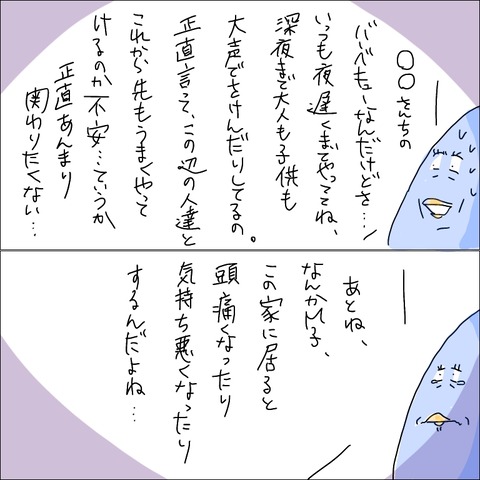 〇〇さんちの
バーベキューなんだけどさ…
いつも夜遅くまでやっててね、
深夜まで大人も子供も
大声でさけんだりしてるの。
正直言って、この辺の人達と
これから先もうまくやって
けるのか不安…ていうか
正直あんまり
関わりたくない…
あとね、
なんかM子、
この家に居ると
頭痛くなったり
気持ち悪くなったり
するんだよね…